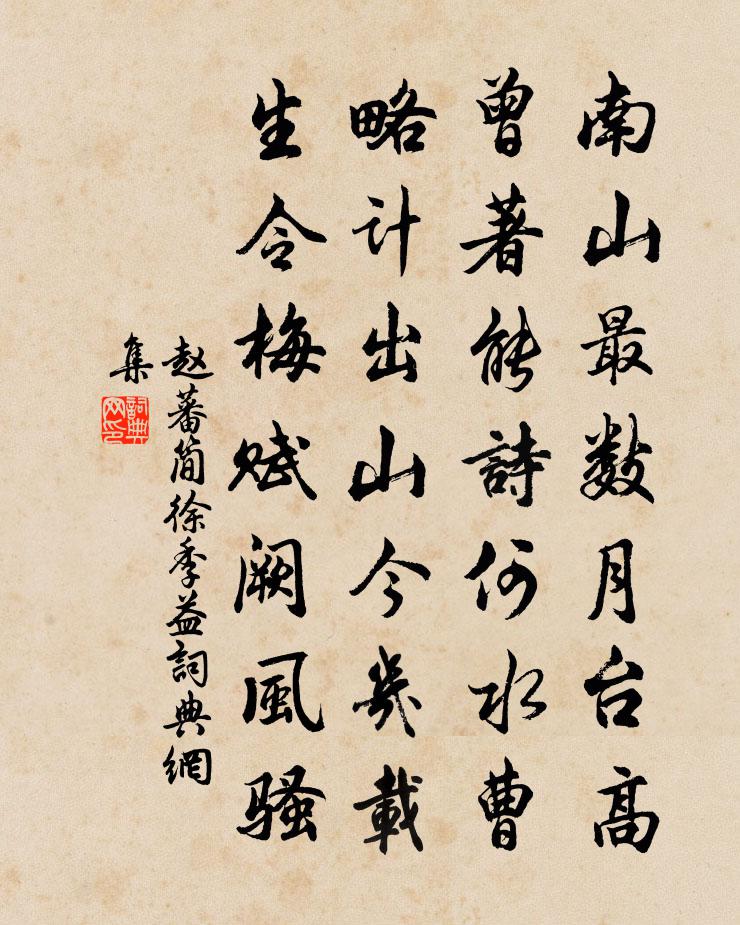 南山最数月台高
曾著能詩何水曹
略计出山今幾載
生令梅赋阙風骚
赵蕃简徐季益詞典網
集
詞典网印